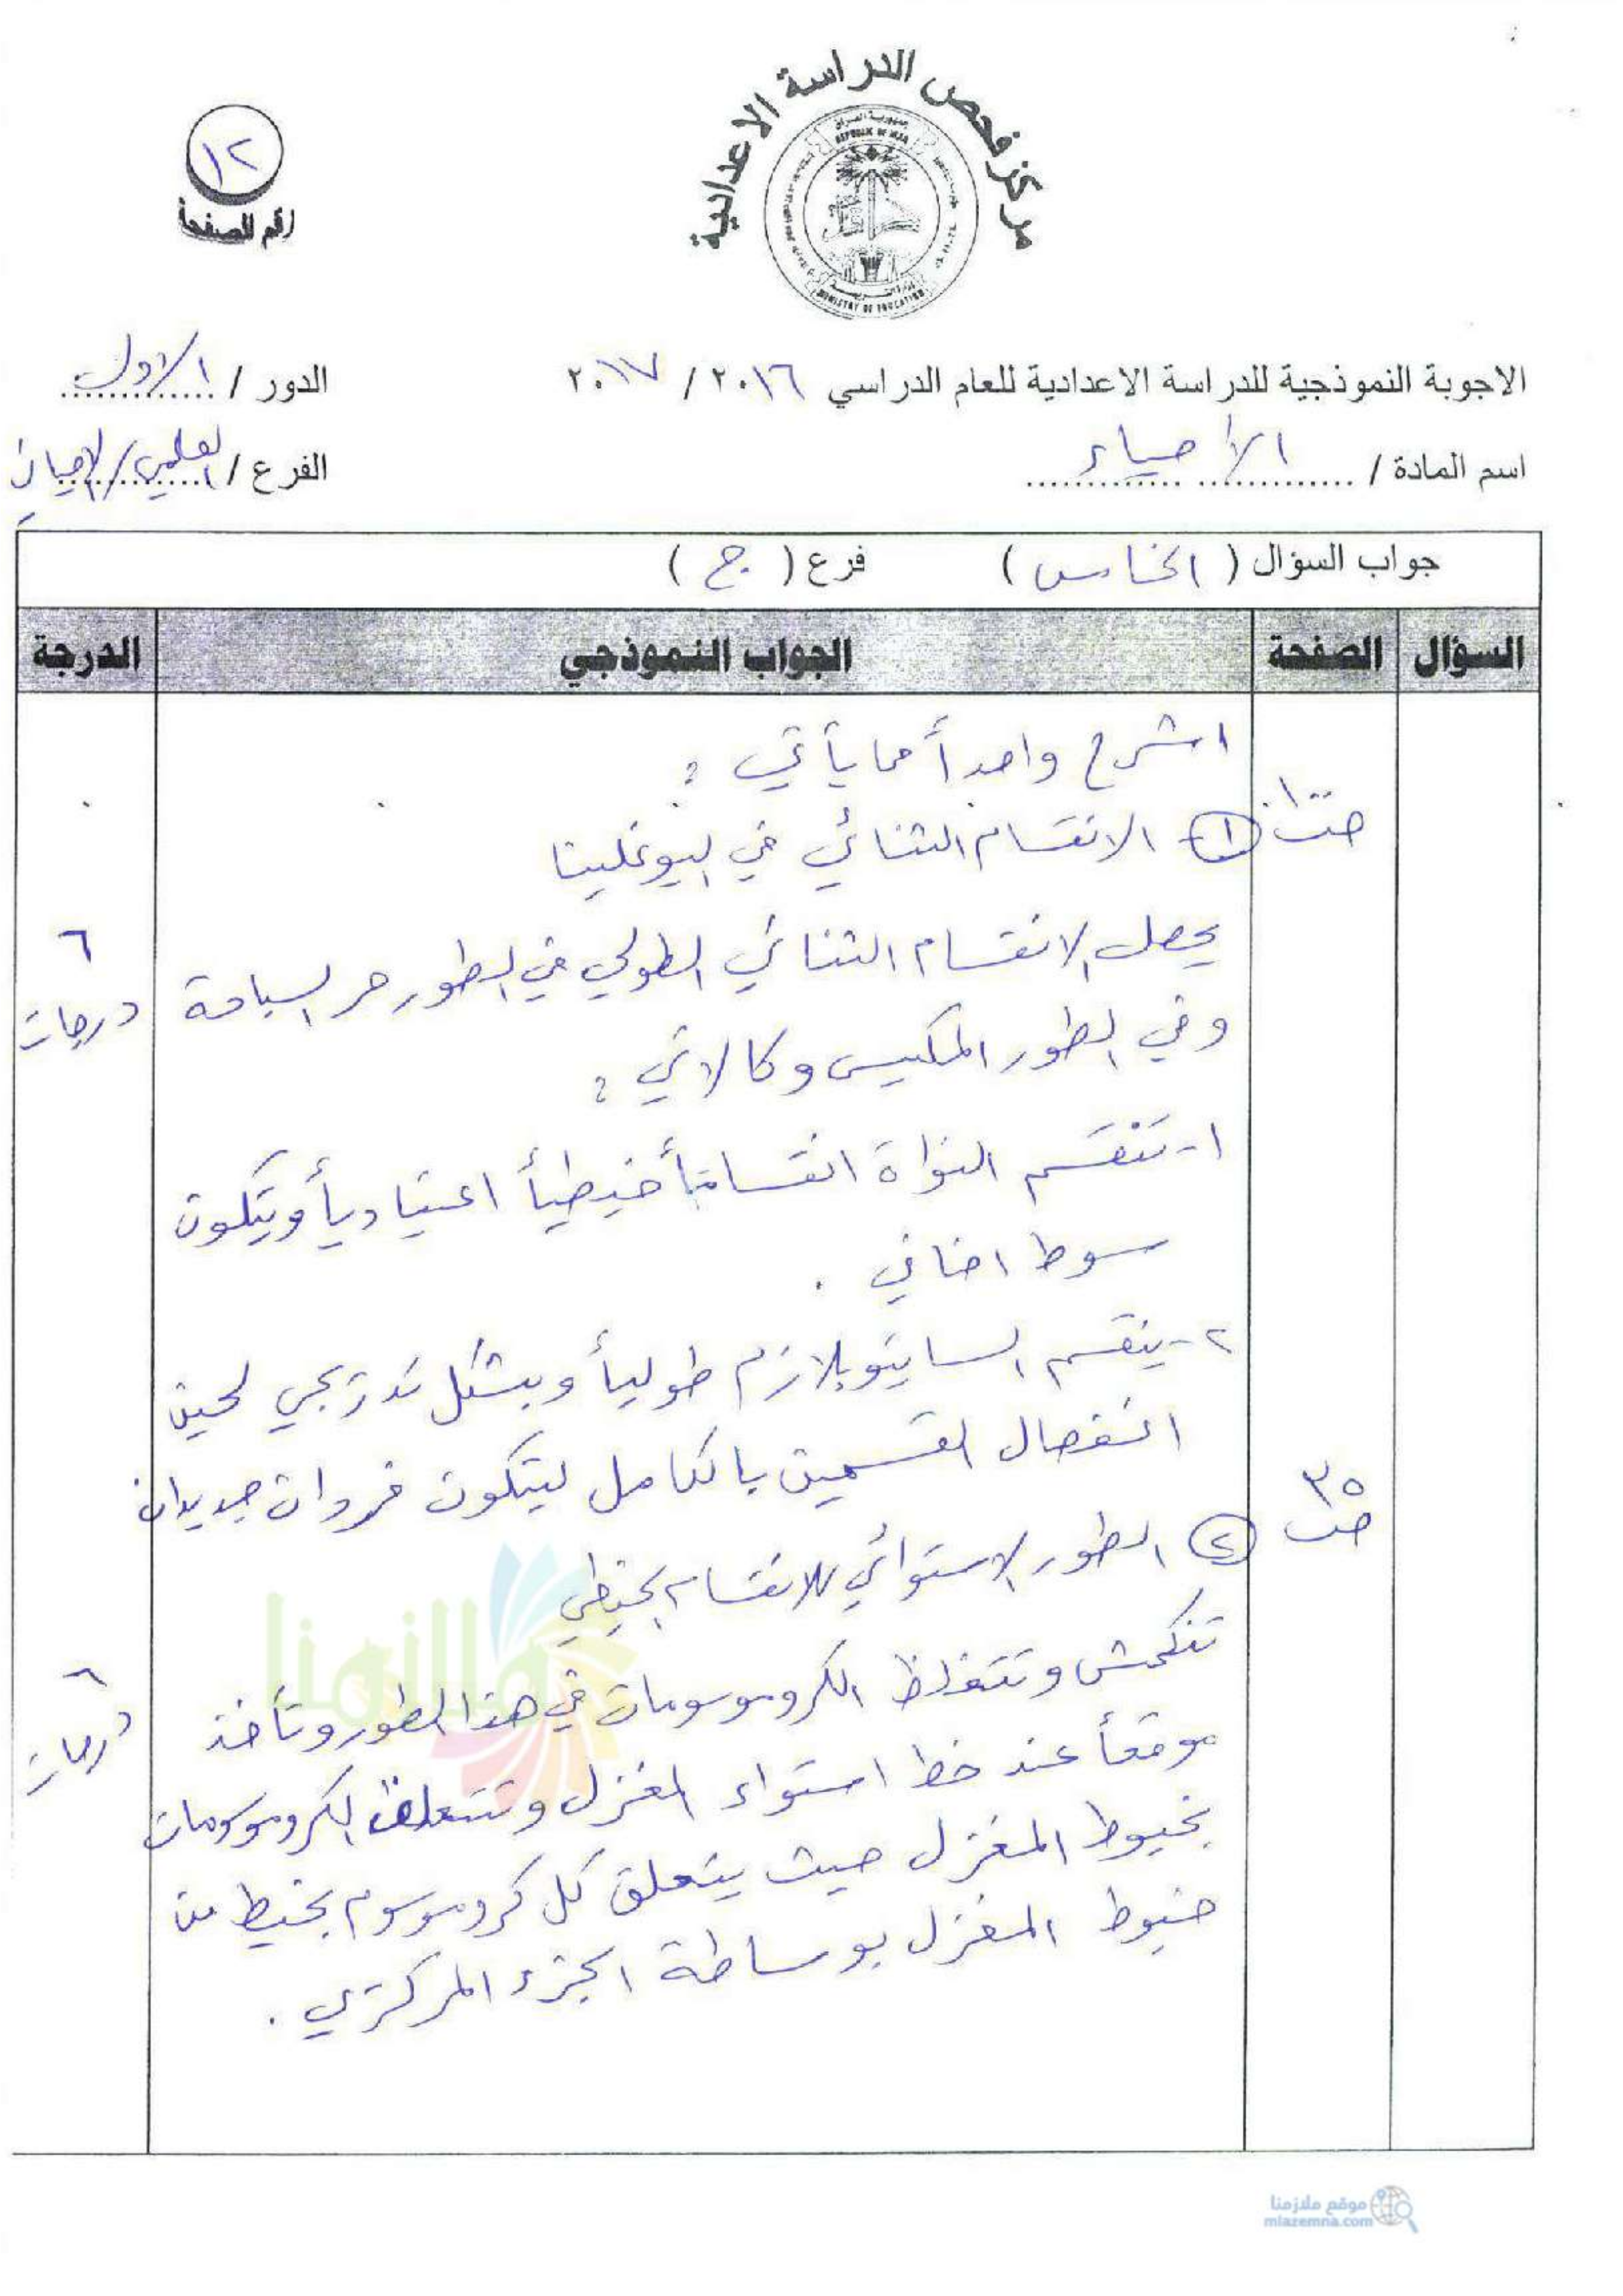 مركز فحص الدراسة الاعدادية
جمهورية العراق
REPUBLIC OF IRAQ
MINISTRY OF EDUCATION
١٢
رقم الصفحة
الاجوبة النموذجية للدراسة الاعدادية للعام الدراسي ٢٠١٦ / ٢٠١٧
الدور / الاول
اسم المادة / الأحياء
الفرع / العلمي / الاحيائي
جواب السؤال ( الخامس ) فرع ( ج )
السؤال الصفحة الجواب النموذجي الدرجة
اشرح واحداً مما يأتي :
ص١٠٠ ① الانقسام الثنائي في اليوغلينا
يحصل الانقسام الثنائي الطولي في الطور حر السباحة
٦ درجات
وفي الطور المكيس وكالاتي :
١- تنقسم النواة انقساماً خيطياً اعتيادياً ويتكون
سوط اضافي .
٢- ينقسم السايتوبلازم طولياً وبشكل تدريجي لحين
انفصال القسمين بالكامل ليتكون فردان جديدان
ص٣٥ ② الطور الاستوائي للانقسام الخيطي
تنكمش وتتغلظ الكروموسومات في هذا الطور وتأخذ
٦ درجات
موقعاً عند خط استواء المغزل وتتعلق الكروموسومات
بخيوط المغزل حيث يتعلق كل كروموسوم بخيط من
خيوط المغزل بوساطة الجزء المركزي .
ملازمنا
موقع ملازمنا
mlazemna.com